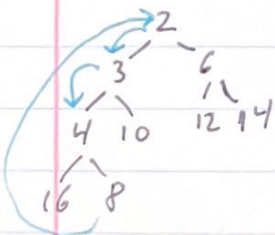 2
3 6
4 10 12 14
16 8